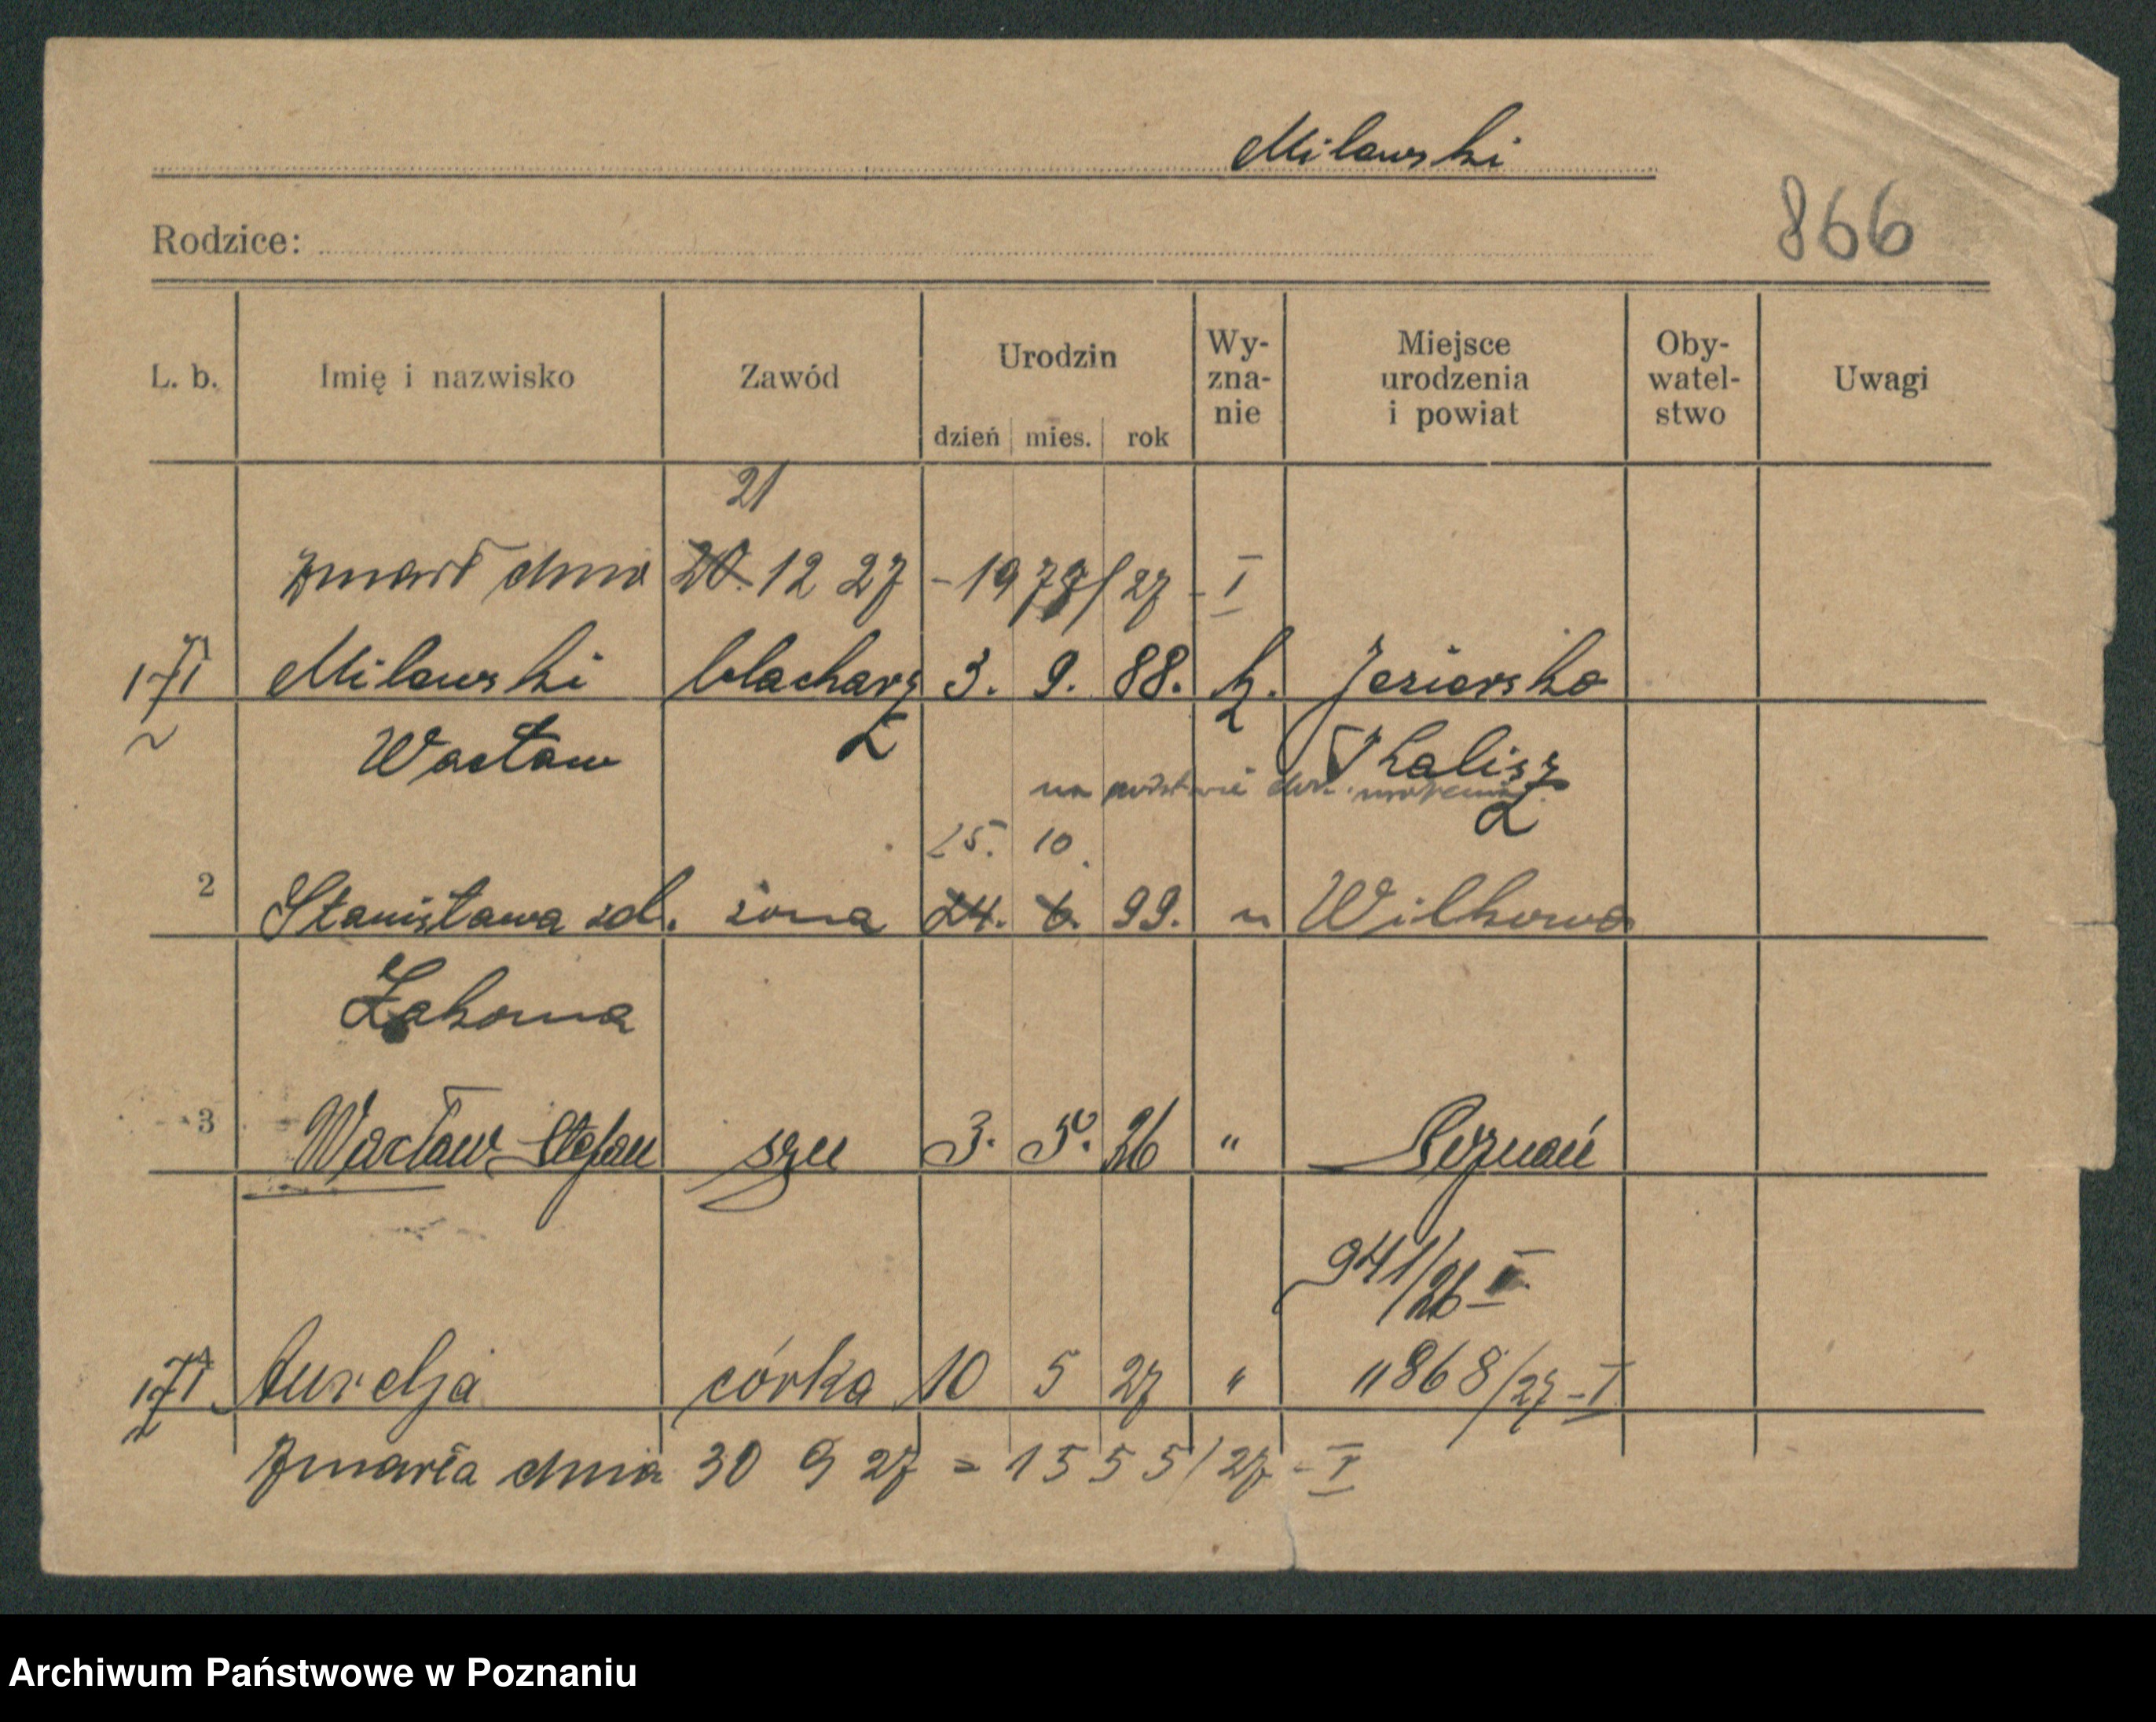 Milewski
866
Rodzice:
L. b. Imię i nazwisko Zawód Urodzin dzień mies. rok Wy-zna-nie Miejsce urodzenia i powiat Oby-watel-stwo Uwagi
21
Zmarł dnia 20. 12 27 - 19 /27 - I
1 Milewski blacharz 3. 9. 88. k. Jeziorsko
Wacław Kalisz
na podstawie urodzenia
25. 10.
2 Stanisława zd. żona 24. 6. 99. " Wilkowo
Zakorna
3 Wacław Stefan syn 3. 5. 26 " Poznań
941/26 - I
Aurelja córka 10 5 27 " " 868/27 - I
Zmarła dnia 30 9 27 = 1555/27 - I
Archiwum Państwowe w Poznaniu